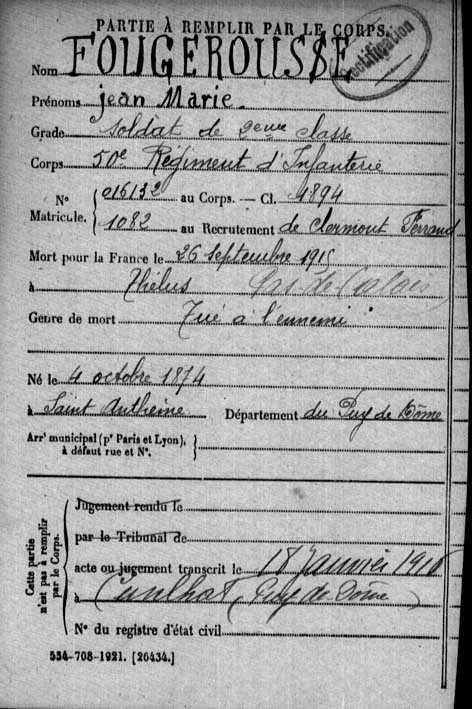 PARTIE À REMPLIR PAR LE CORPS.
Rectification
Nom FOUGEROUSSE
Prénoms Jean Marie.
Grade Soldat de 2eme classe
Corps 50e Régiment d'Infanterie
N° Matricule. { 016132 au Corps. — Cl. 1894
1082 au Recrutement de Clermont Ferrand
Mort pour la France le 26 septembre 1915
à Thélus (Pas-de-Calais)
Genre de mort Tué à l'ennemi
Né le 4 octobre 1874
à Saint Anthême Département du Puy de Dôme
Arrt municipal (pr Paris et Lyon), à défaut rue et N°. }
Cette partie n'est pas à remplir par le Corps. {
Jugement rendu le
par le Tribunal de
acte ou jugement transcrit le 18 Janvier 1916
à Cunlhat (Puy de Dôme)
N° du registre d'état civil
534-708-1921. [26434.]